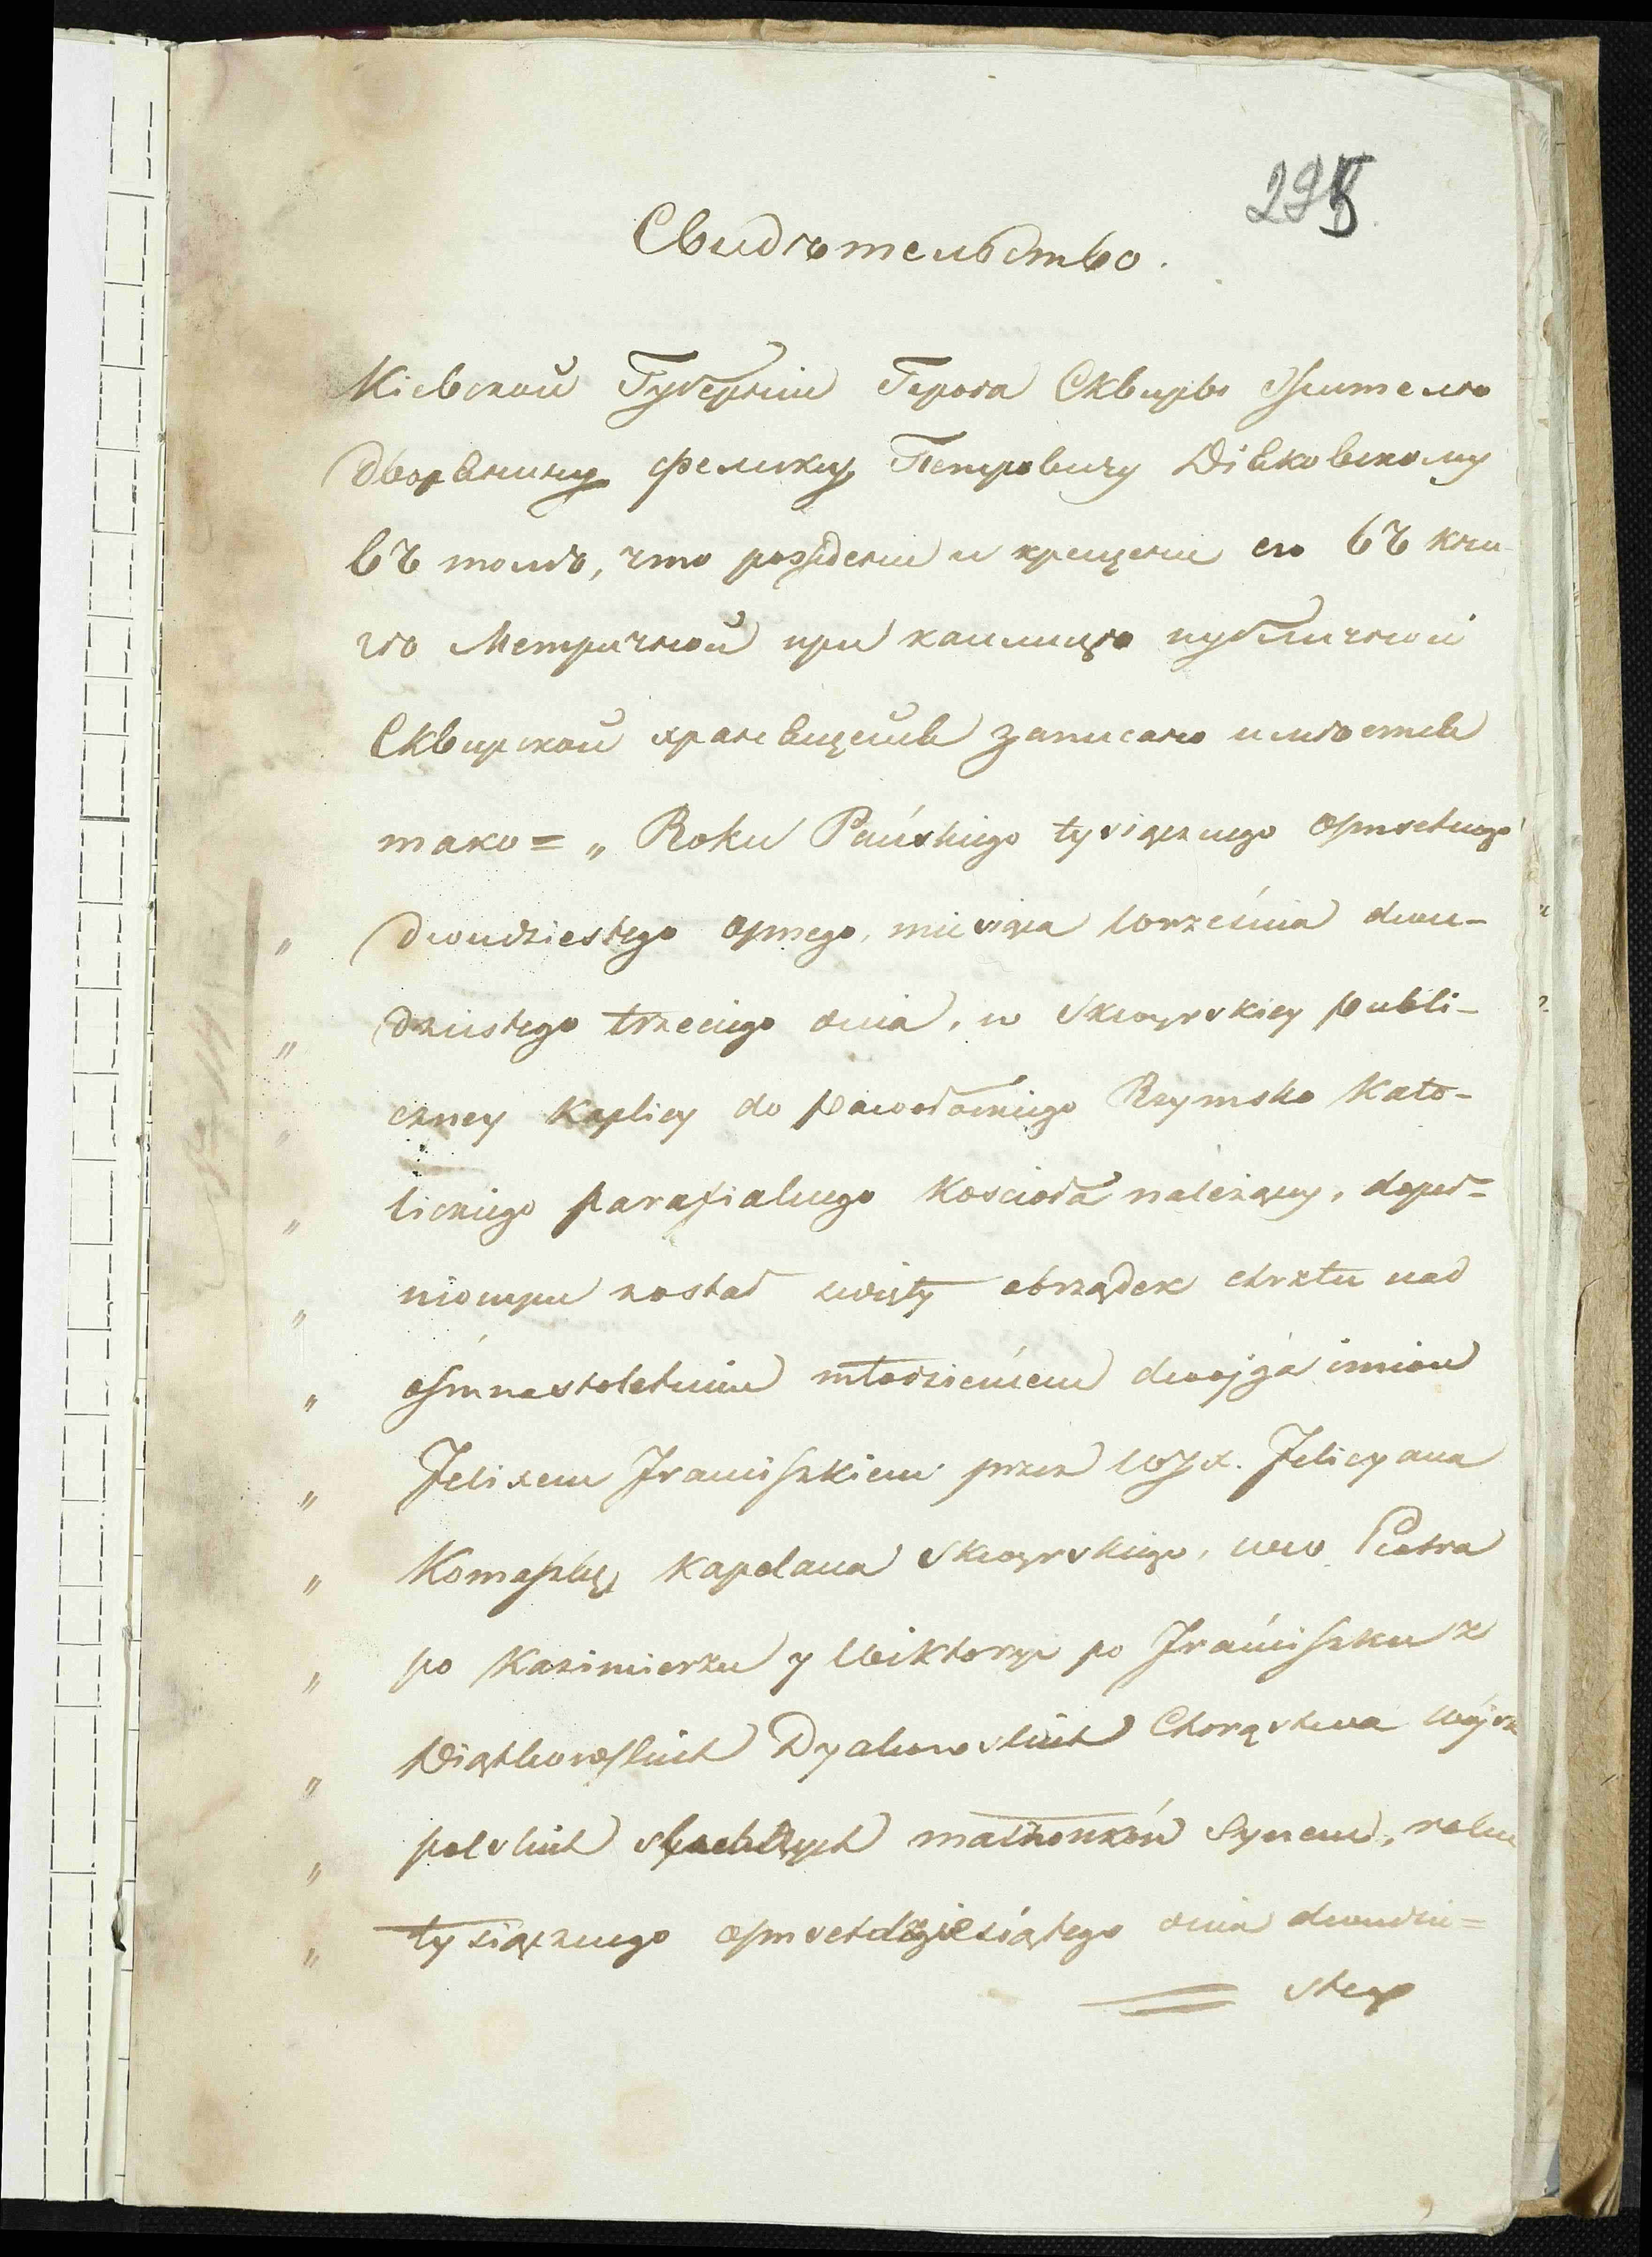 295
Свидѣтельство.
Кіевской Губерніи Города Сквиры жителю
дворянину Феликсу Петровичу Дяковскому
въ томъ, что рожденіе и крещеніе его въ кни-
гѣ Метричной при каплицѣ публичной
Сквирской хранящейся записано имѣется
тако = „ Roku Pańskiego tysiącznego ośmsetnego
„ dwudziestego osmego, miesiąca Września dwu-
„ dziestego trzeciego dnia, w Skwyrskiey publi-
„ czney Kaplicy do pawołockiego Rzymsko Kato-
„ lickiego parafialnego Kościoła należący, dopeł-
„ nionym został święty obrządek chrztu nad
„ ośmnastoletnim młodzieńcem dwojga imion
„ Felixem Franciszkiem przez WJX. Felicyana
„ kapelana Skwyrskiego, Piotra
„ po Kazimierzu y Wiktoryi po Franciszku z
„ Wiątkowskich Dyakowskich Chorąstwa wojsk
„ polskich szlachetnych małżonków Synem, roku
„ tysiącznego ośmsetdziesiątego dnia dwudzie=
stego